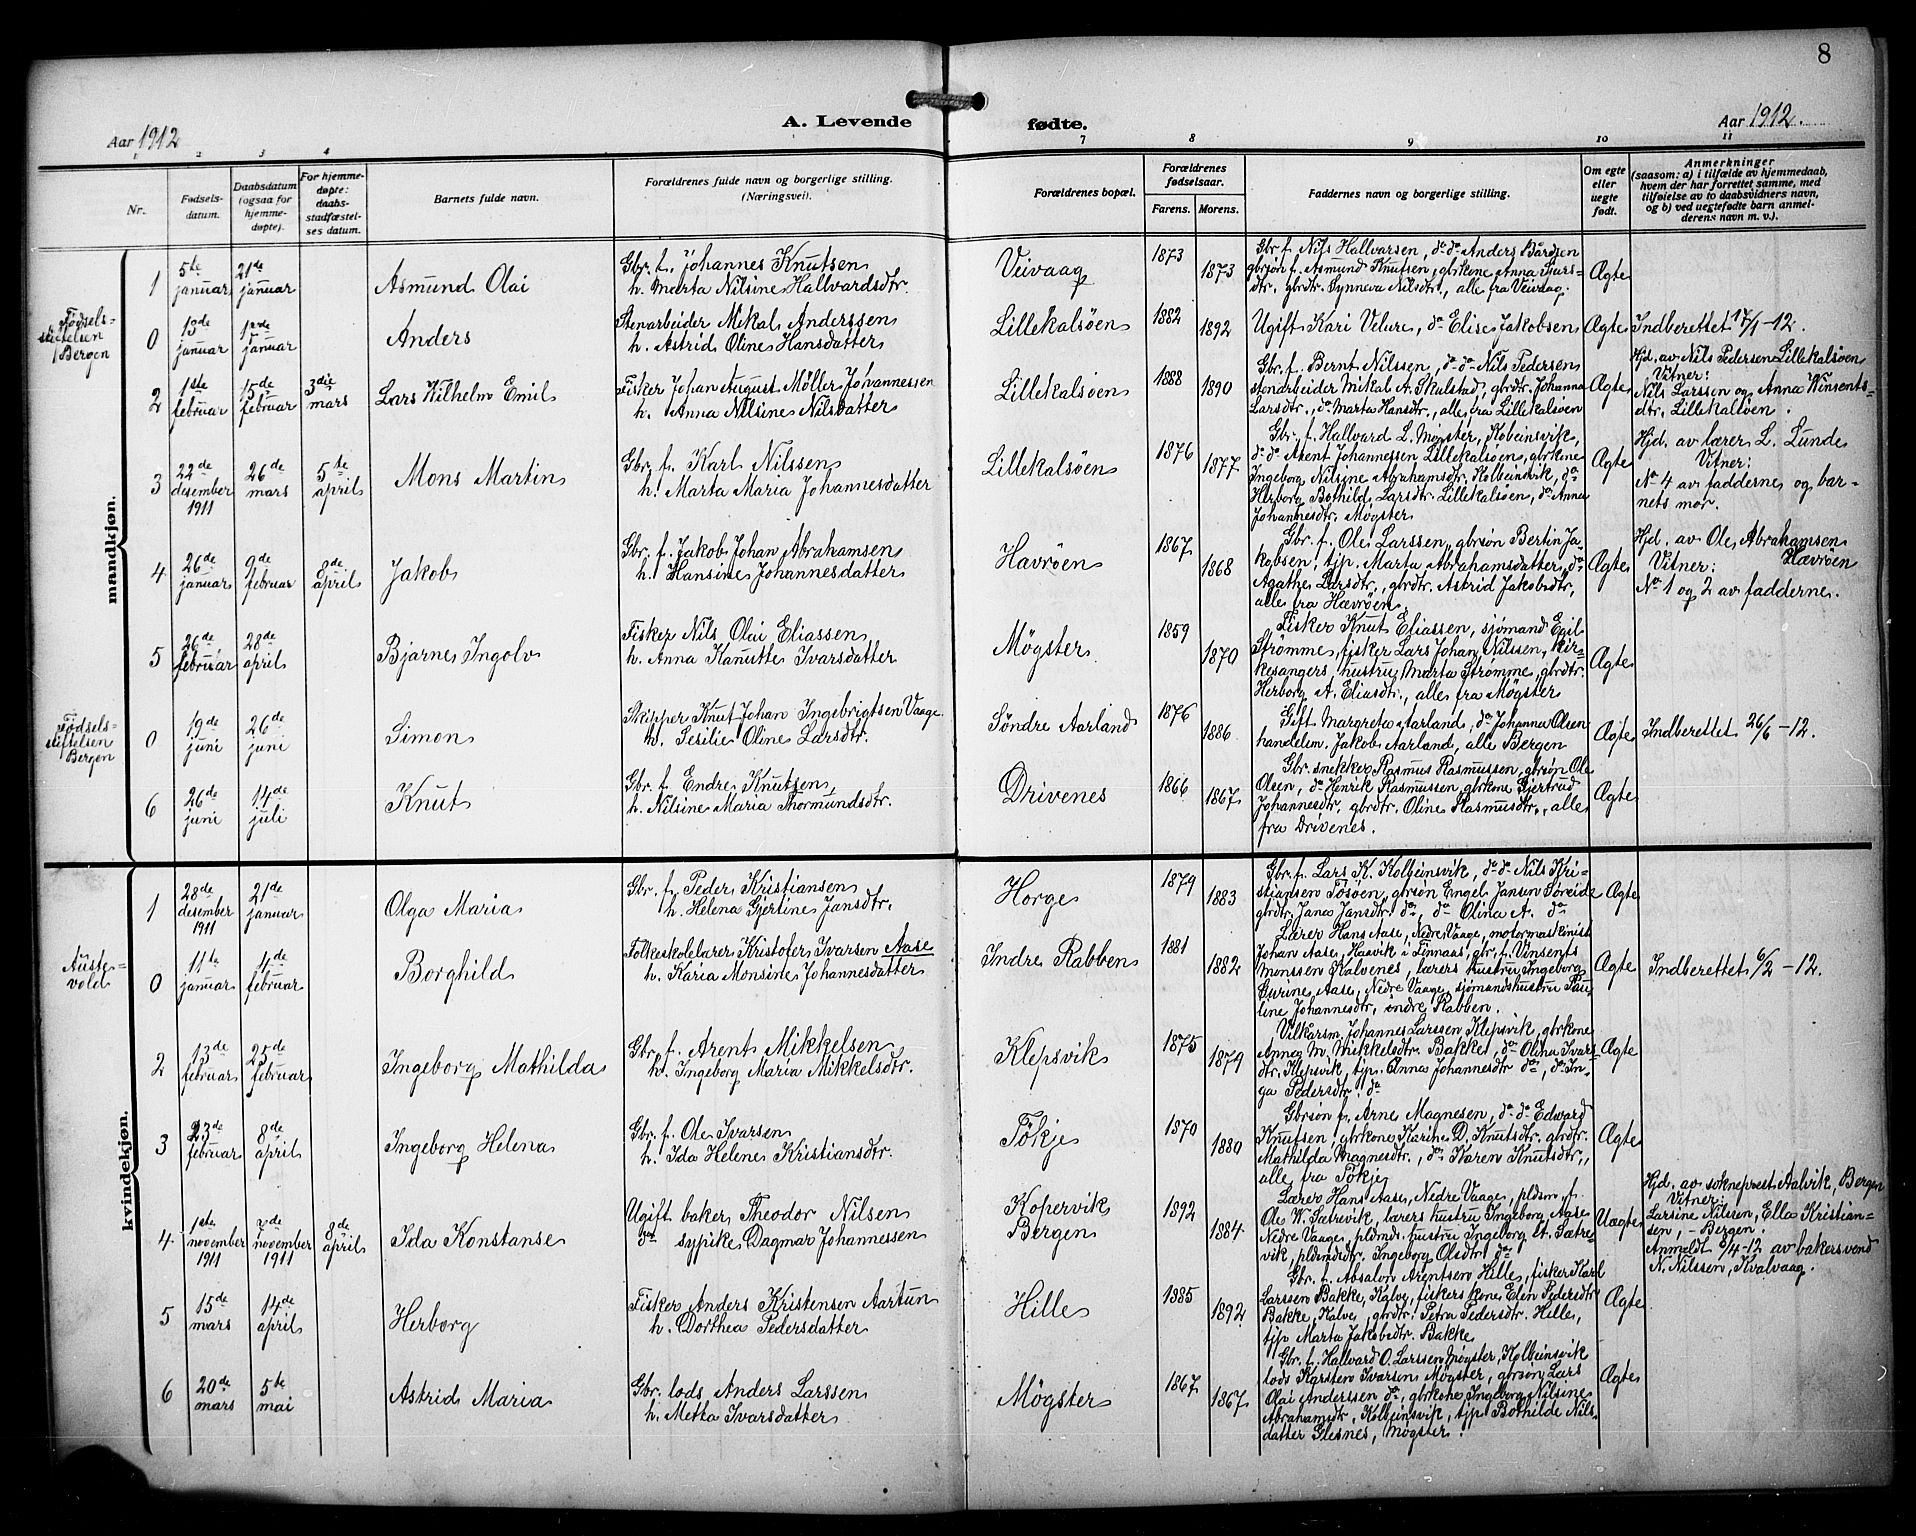 8
A. Levende fødte.
Aar 1912
Aar 1912.
1 2 3 4
7 8 9 10 11
Nr.
Fødsels-
datum.
Daabsdatum
(ogsaa for
hjemme-
døpte).
For hjemme-
døpte:
daabs-
stadfæstel-
ses datum.
Barnets fulde navn.
Forældrenes fulde navn og borgerlige stilling.
(Næringsvei).
Forældrenes bopæl.
Forældrenes
fødselsaar.
Farens. Morens.
Faddernes navn og borgerlige stilling.
Om egte
eller
uegte
født.
Anmerkninger
(saasom: a) i tilfælde av hjemmedaab,
hvem der har forrettet samme, med
tilføielse av to daabsvidners navn,
og b) ved uegtefødte barn anmel-
derens navn m. v.).
mandkjøn.
1
5te januar
21de januar
Asmund Olai
Gbr. f. Johannes Knutsen
h. Marta Nilsine Hallvardsdtr.
Veivaag
1873
1873
Gbr. f. Nils Hallvarsen, do do Anders Bårdsen
gbrsøn f. Asmund Knutsen, gbrkone Anna Sjurs-
dtr. gbrdtr. Synneva Nilsdtr., alle fra Veivaag.
Ægte
Fødsels-
stiftelsen
i Bergen
0
13de januar
januar
Anders
Stenarbeider Mikal Anderssen
h. Astrid Oline Hansdatter
Lillekalsøen
1882
1892
Ugift Kari Velure, do Elise Jakobsen
Ægte
Indberettet 17/1 -12.
2
1ste februar
15de februar
3die mars
Lars Wilhelm Emil
Fisker Johan August Møller Johannessen
h. Anna Nilsine Nilsdatter
Lillekalsøen
1888
1890
Gbr. f. Bernt Nilssen, do do Nils Pedersen
stenarbeider Mikal A. Skulstad, gbrdtr. Johanna
Larsdtr., do Marta Hansdtr., alle fra Lillekalsøen
Ægte
Hjd. av Nils Pedersen Lillekalsøen
Vitner:
Nils Larssen og Anna Winsents-
dtr. Lillekalsøen.
3
22de desember 1911
26de mars
5te april
Mons Martin
Gbr. f. Karl Nilssen
h. Marta Maria Johannesdatter
Lillekalsøen
1876
1877
Gbr. f. Hallvard L. Møgster, Kolbeinsvik,
do do Arent Johannessen Lillekalsøen, gbrkone
Ingeborg Nilsine Abrahamsdtr. Kolbeinsvik, do
Herborg Bothild Larsdtr. Lillekalsøen, do Anna
Johannesdtr. Møgster
Ægte
Hjd. av lærer L. Lunde
Vitner:
No 4 av fadderne og bar-
nets mor.
4
26de januar
9de februar
8de april
Jakob
Gbr. f. Jakob Johan Abrahamsen
h. Hansine Johannesdatter
Havrøen
1867
1868
Gbr. f. Ole Larssen, gbrsøn Bertin Ja-
kobsen, tjp. Marta Abrahamsdatter, do
Agathe Larsdtr., gbrdtr. Astrid Jakobsdtr,
alle fra Hævrøen.
Ægte
Hjd. av Ole Abrahamsen
Vitner: Hævrøen
No 1 og 2 av fadderne.
5
26de februar
28de april
Bjarne Ingolv
Fisker Nils Olai Eliassen
h. Anna Kanutte Ivarsdatter
Møgster
1859
1870
Fisker Knut Eliassen, sjømand Egil
Strømme, fisker Lars Johan Nilssen, kir-
kesangers hustru Marta Strømme, gbrdtr.
Herborg A. Eliasdtr., alle fra Møgster
Ægte
Fødsels-
stiftelsen
Bergen
0
19de juni
26de juni
Simon
Skipper Knut Johan Ingebrigtsen Vaage
h. Sesilie Oline Larsdtr.
Søndre Aarland
1876
1886
Gift Margrete Aarland, do Johanna Olsen
handelsm. Jakob Aarland, alle Bergen
Ægte
Indberettet 26/6 -12.
6
26de juni
14de juli
Knut
Gbr. f. Endre Knutsen
h. Nilsine Maria Thormundsdtr.
Drivenes
1866
1867
Gbr. snekker Rasmus Rasmussen, gbrsøn Ole
Olsen, do Henrik Rasmussen gbrkone Gjertrud
Johannesdtr, gbrdtr. Oline Rasmusdtr., alle
fra Drivenes.
Ægte
kvindekjøn.
1
28de desember 1911
21de januar
Olga Maria
Gbr. f. Peder Kristiansen
h. Helena Gjertine Jansdtr.
Horge
1879
1883
Gbr. f. Lars K. Kolbeinsvik, do do Nils Kri-
stiansen Tosøen, gbrsøn Engel Jansen Søreide
gbrdtr. Jana Jansdtr. do, do Olina A. do
Ægte
Auste-
vold
0
11te januar
4de februar
Borghild
Folkeskolelærer Kristofer Ivarsen Aase
h. Karia Monsine Johannesdatter
Indre Rabben
1881
1882
Lærer Hans Aase, Nedre Vaage, motormaskinist
Johan Aase, Haavik i Finnaas, gbr. f. Vinsents
Monssen Kalvenes, lærers hustru Ingeborg
Gurine Aase, Nedre Vaage, sjømandshustru Pau-
line Johannesdtr, indre Rabben.
Ægte
Indberettet 6/2 -12.
2
13de februar
25de februar
Ingeborg Mathilda
Gbr. f. Arent Mikkelsen
h. Ingeborg Maria Mikkelsdtr.
Klepsvik
1875
1879
Vilkårsm. Johannes Larssen Klepsvik, gbrkone
Anna M. Mikkelsdtr. Bakke, do Olina Ivars-
dtr. Klepsvik, tjp. Anna Johannesdtr do, do In-
ga Pedersdtr. do
Ægte
3
23de februar
8de april
Ingeborg Helena
Gbr. f. Ole Ivarsen
h. Ida Helene Kristiansdtr.
Tökje
1870
1880
Gbrsøn f. Arne Magnesen, do do Edward
Knutsen, gbrkone Karine D. Knutsdtr. gbrdtr.
Mathilda Magnesdtr., do Karen Knutsdtr.,
alle fra Tökje
Ægte
4
1ste november 1911
2de november 1911
8de april
Ida Konstanse
Ugift baker Theodor Nilsen
do sypike Dagmar Johannessen
Kopervik
Bergen
1892
1884
Lærer Hans Aase, Nedre Vaage, pldsm. f.
Ole W. Sætrevik, lærers hustru Ingeborg Aase
Nedre Vaage, pldmds. hustru Ingeborg Sætre-
vik, pldmdsdtr. Ingeborg Olsdtr. do
Uægte
Hjd. av sokneprest Aalvik, Bergen
Vitner:
Larsine Nilsen, Ella Kristian-
sen, - Bergen.
Anmeldt 6/4-12 av bakersvend
N. Nilssen, Kvalvaag.
5
15de mars
14de april
Herborg
Fisker Anders Kristensen Aartun
h. Dorthea Pedersdatter
Hille
1885
1892
Gbr. f. Absalon Arentsen Hille, fisker Karl
Larssen Bakke, Kalve, fiskers kone Elen Pedersdtr
Bakke, Kalve, gbrdtr. Petra Pedersdtr. Hille,
tjp Marta Jakobsdtr. Bakke
Ægte
6
20de mars
5te mai
Astrid Maria
Gbr. lods Anders Larssen
h. Metta Ivarsdatter
Møgster
1867
1867
Gbr. f. Hallvard O. Larssen Møgster, Kolbeinsvik
lods Karsten Ivarsen Møgster, gbrsøn Lars
Olai Anderssen do, gbrkone Ingeborg Nilsine
Abrahamsdtr, Kolbeinsvik, tjp. Bothilde Nils-
datter Glesnes, Møgster.
Ægte